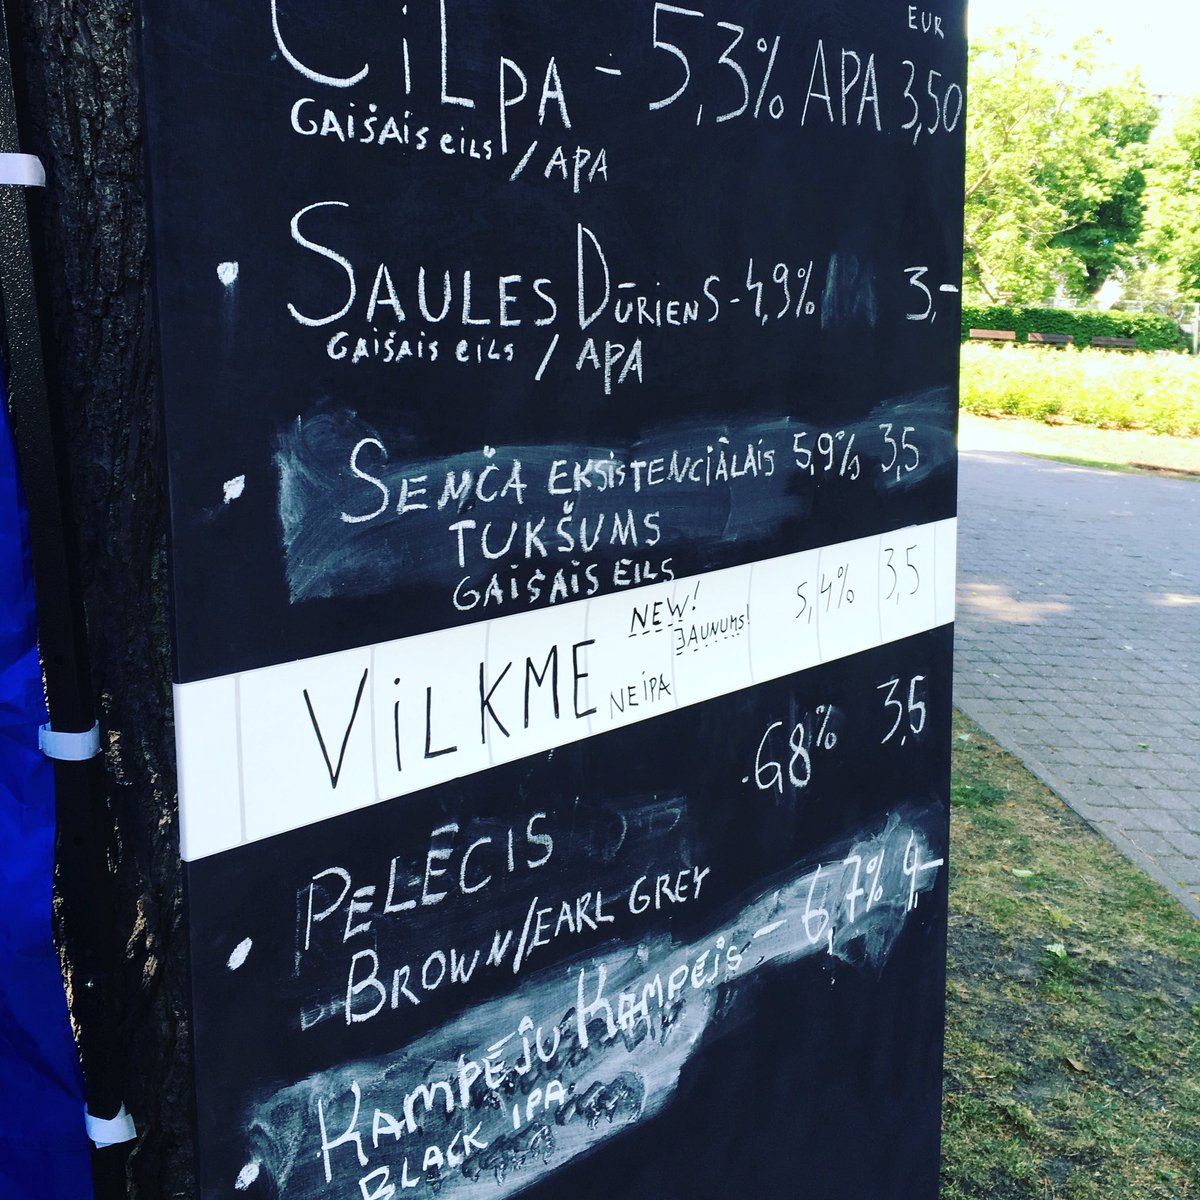 EUR
CiLPA - 5,3% APA 3,50
GAIŠAIS EILS / APA
SAULES DŪRIENS - 4,9% 3,-
GAIŠAIS EILS / APA
SENČA EKSISTENCIĀLAIS 5,9% 3,5
TUKŠUMS
GAIŠAIS EILS
NEW! 5,4% 3,5
JAUNUMS!
ViLKME NEIPA
6,8% 3,5
PELĒCIS
BROWN/EARL GREY
KAMPĒJU KAMPEIS - 6,7% 4,-
BLACK IPA